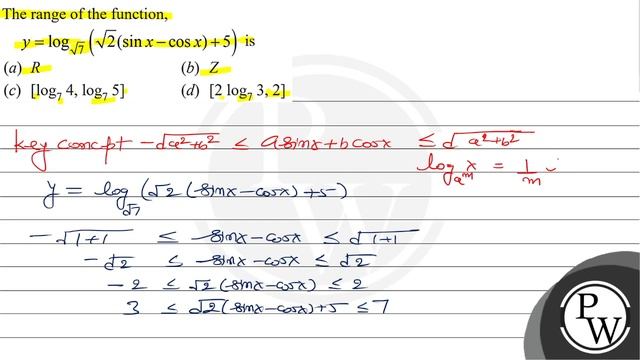 The range of the function,
y = log_√7 (√2(sin x − cos x) + 5) is
(a) R (b) Z
(c) [log₇ 4, log₇ 5] (d) [2 log₇ 3, 2]
Key concept − √(a²+b²) ≤ a sinx + b cosx ≤ √(a²+b²)
log_{a^m} x = 1/m
y = log_√7 (√2 (sinx − cosx) + 5)
− √(1+1) ≤ sinx − cosx ≤ √(1+1)
− √2 ≤ sinx − cosx ≤ √2
− 2 ≤ √2 (sinx − cosx) ≤ 2
3 ≤ √2 (sinx − cosx) + 5 ≤ 7
PW